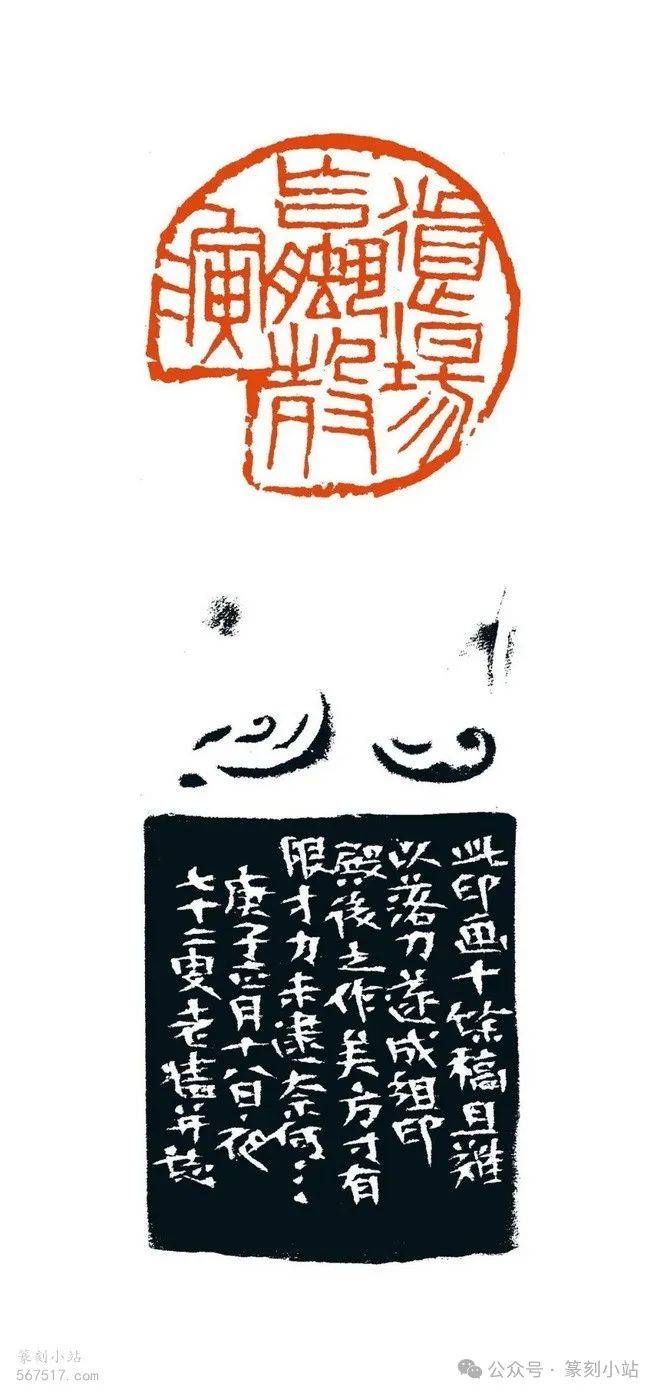 道場
散
演
此印画十餘稿且難
以落刀遂成組印
殿後之作美方寸有
限才力未逮奈何
庚子正月十八日夜
七十二叟老犢并誌
篆刻小站
567517.com
公众号 · 篆刻小站